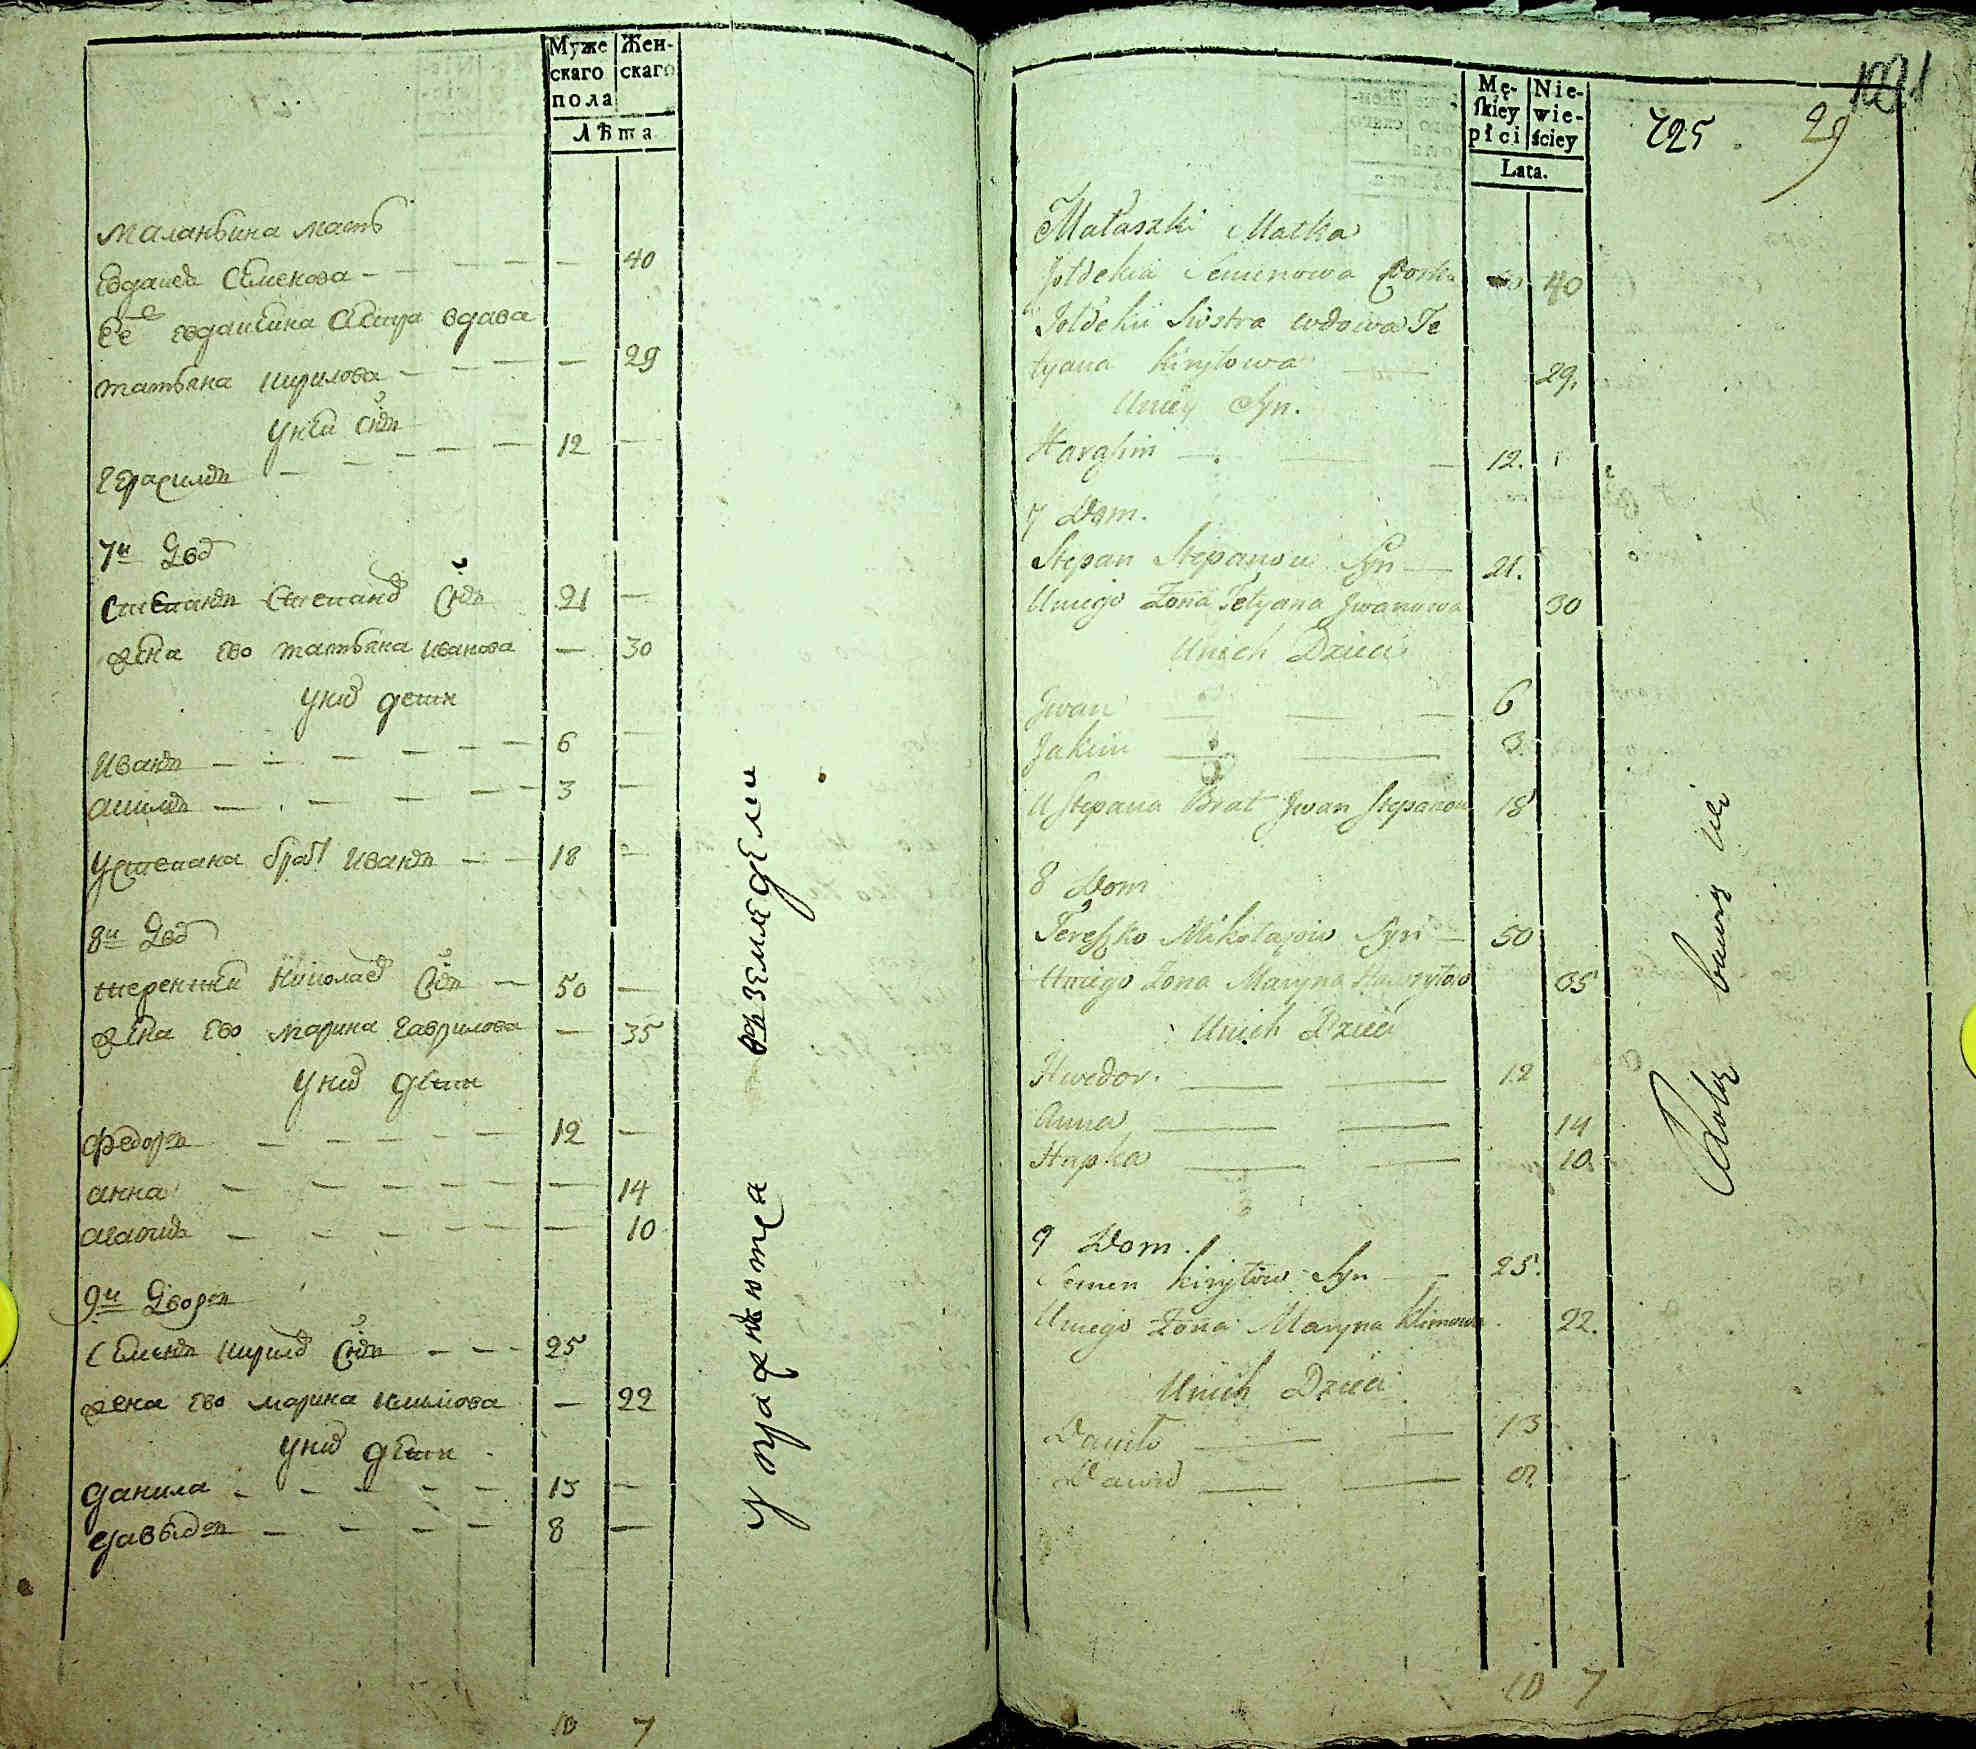 Муже
скаго
пола
Жен-
скаго
Лѣта
Маланьина мать
Евдаиеь Семенова — 40
Ее евдаиеина сестра вдава
татьяна кирилова — 29
у неи снъ
герасимъ — 12 —
7й двъ
степанъ степанъ снъ 21 —
жена ево татьяна иванова — 30
у них дети
иванъ — 6 —
акимъ — 3 —
у степана братъ иванъ — 18 —
8й двъ
терешки николаевъ снъ — 50 —
жена ево марина гаврилова — 35
у них дети
федоръ — 12 —
анна — 14
агапиа — 10
9й дворъ
семенъ кирилъ снъ — 25
жена ево марина климова — 22
у них дети
данила — 13 —
давыдъ — 8 —
10 7
упражнюютца въ земледели
Mę-
skiey
płci
Nie-
wie-
ściey
Lata.
725
29
Małaszki Matka
Semenowa Corka 40
Siostra wdowa Te
tyana kiryłowa 29.
Uniey Syn.
Harasim — 12.
7 Dom.
Stepan Stepanow Syn — 21.
Uniego Zona Tetyana Jwanowa 30
Unich Dzieci
Jwan — 6
Jakim — 3.
U Stepana Brat Jwan Stepanow 18
8 Dom
Tereszko Mikołajow Syn — 50
Uniego Zona Maryna Hawryłow 35
Unich Dzieci
Hwedor. — 12
Anna — 14
Hapka — 10.
9 Dom.
Semen kiryłow Syn — 25.
Uniego Zona Maryna Klimowa 22.
Unich Dzieci
Daniło — 13
Dawid — 8.
10 7